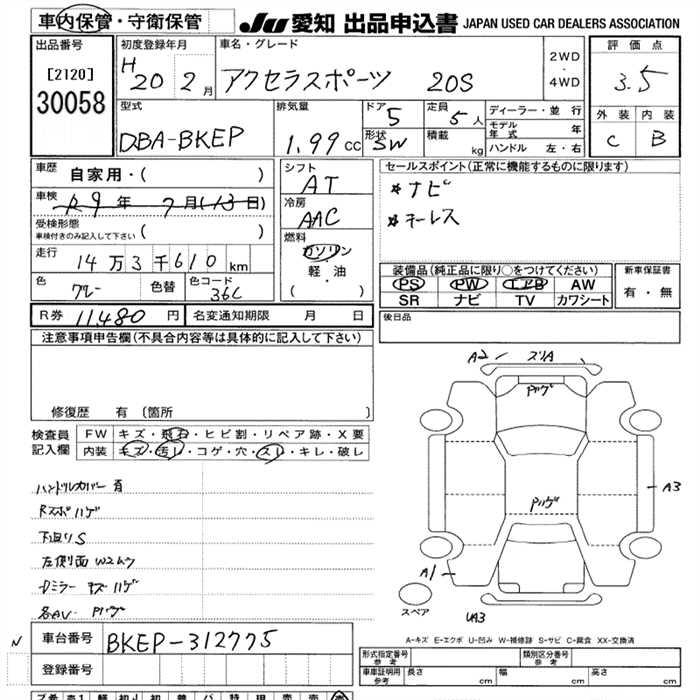 車内保管・守衛保管 JU 愛知 出品申込書 JAPAN USED CAR DEALERS ASSOCIATION
出品番号 初度登録年月 車名・グレード 2WD・4WD 評価点
[2120] H 20 2月 アクセラスポーツ 20S 3.5
30058 型式 排気量 ドア 5 定員 5人 ディーラー・並行 外装 内装
DBA-BKEP 1.99cc 形状 SW 積載 kg モデル年式 年 C B
ハンドル 左・右
車歴 自家用・( ) シフト AT セールスポイント(正常に機能するものに限ります)
車検 R9年 7月(13日) 冷房 AAC *ナビ
受検形態 車検付きのみ記入して下さい ( ) 燃料 ガソリン・軽・油 ( ) *キーレス
走行 14万3千610km 装備品(純正品に限り○をつけてください) 新車保証書
色 グレー 色替 色コード 36C PS PW エアB AW 有・無
SR ナビ TV カワシート
R券 11,480円 名変通知期限 月 日 後日品
注意事項申告欄(不具合内容等は具体的に記入して下さい)
修復歴 有 (箇所 )
検査員記入欄 FW キズ・飛石・ヒビ割・リペア跡・X要
内装 キズ・汚レ・コゲ・穴・スレ・キレ・破レ
ハンドルカバー 有
Rスポハゲ
下回りS
左側面 W2ムラ
ドミラー キズ ハゲ
各AV. Pハゲ
A2 スリA
Pハゲ
Pハゲ
A3
A1
スペア
UA3
A-キズ E-エクボ U-凹み W-補修跡 S-サビ C-腐食 XX-交換済
N 車台番号 BKEP-312775
登録番号
形式指定番号 参考 類別区分番号 参考
車庫証明用 参考 長さ cm 幅 cm 高さ cm